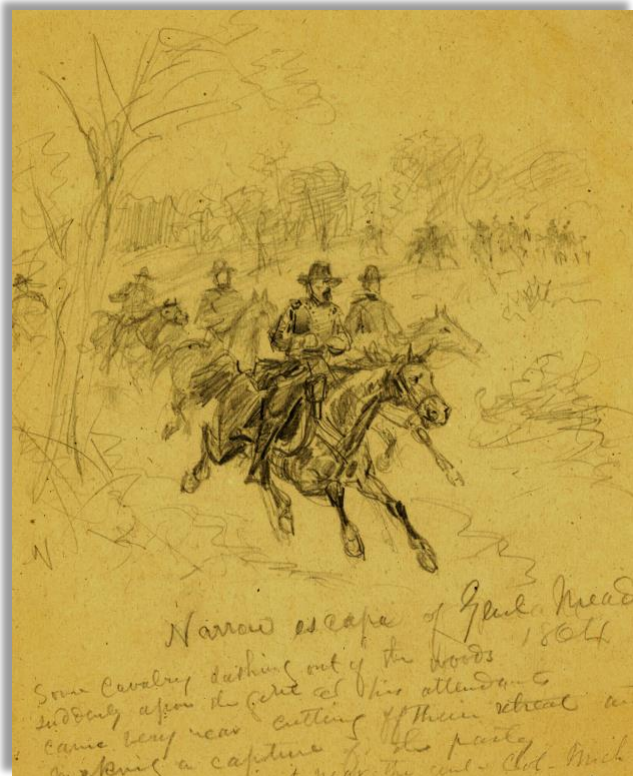 Narrow escape of Genl. Mead
1864
Some Cavalry dashing out of the woods
suddenly upon the Genl & his attendants
came very near cutting off their retreat an
making a capture of the party
near the